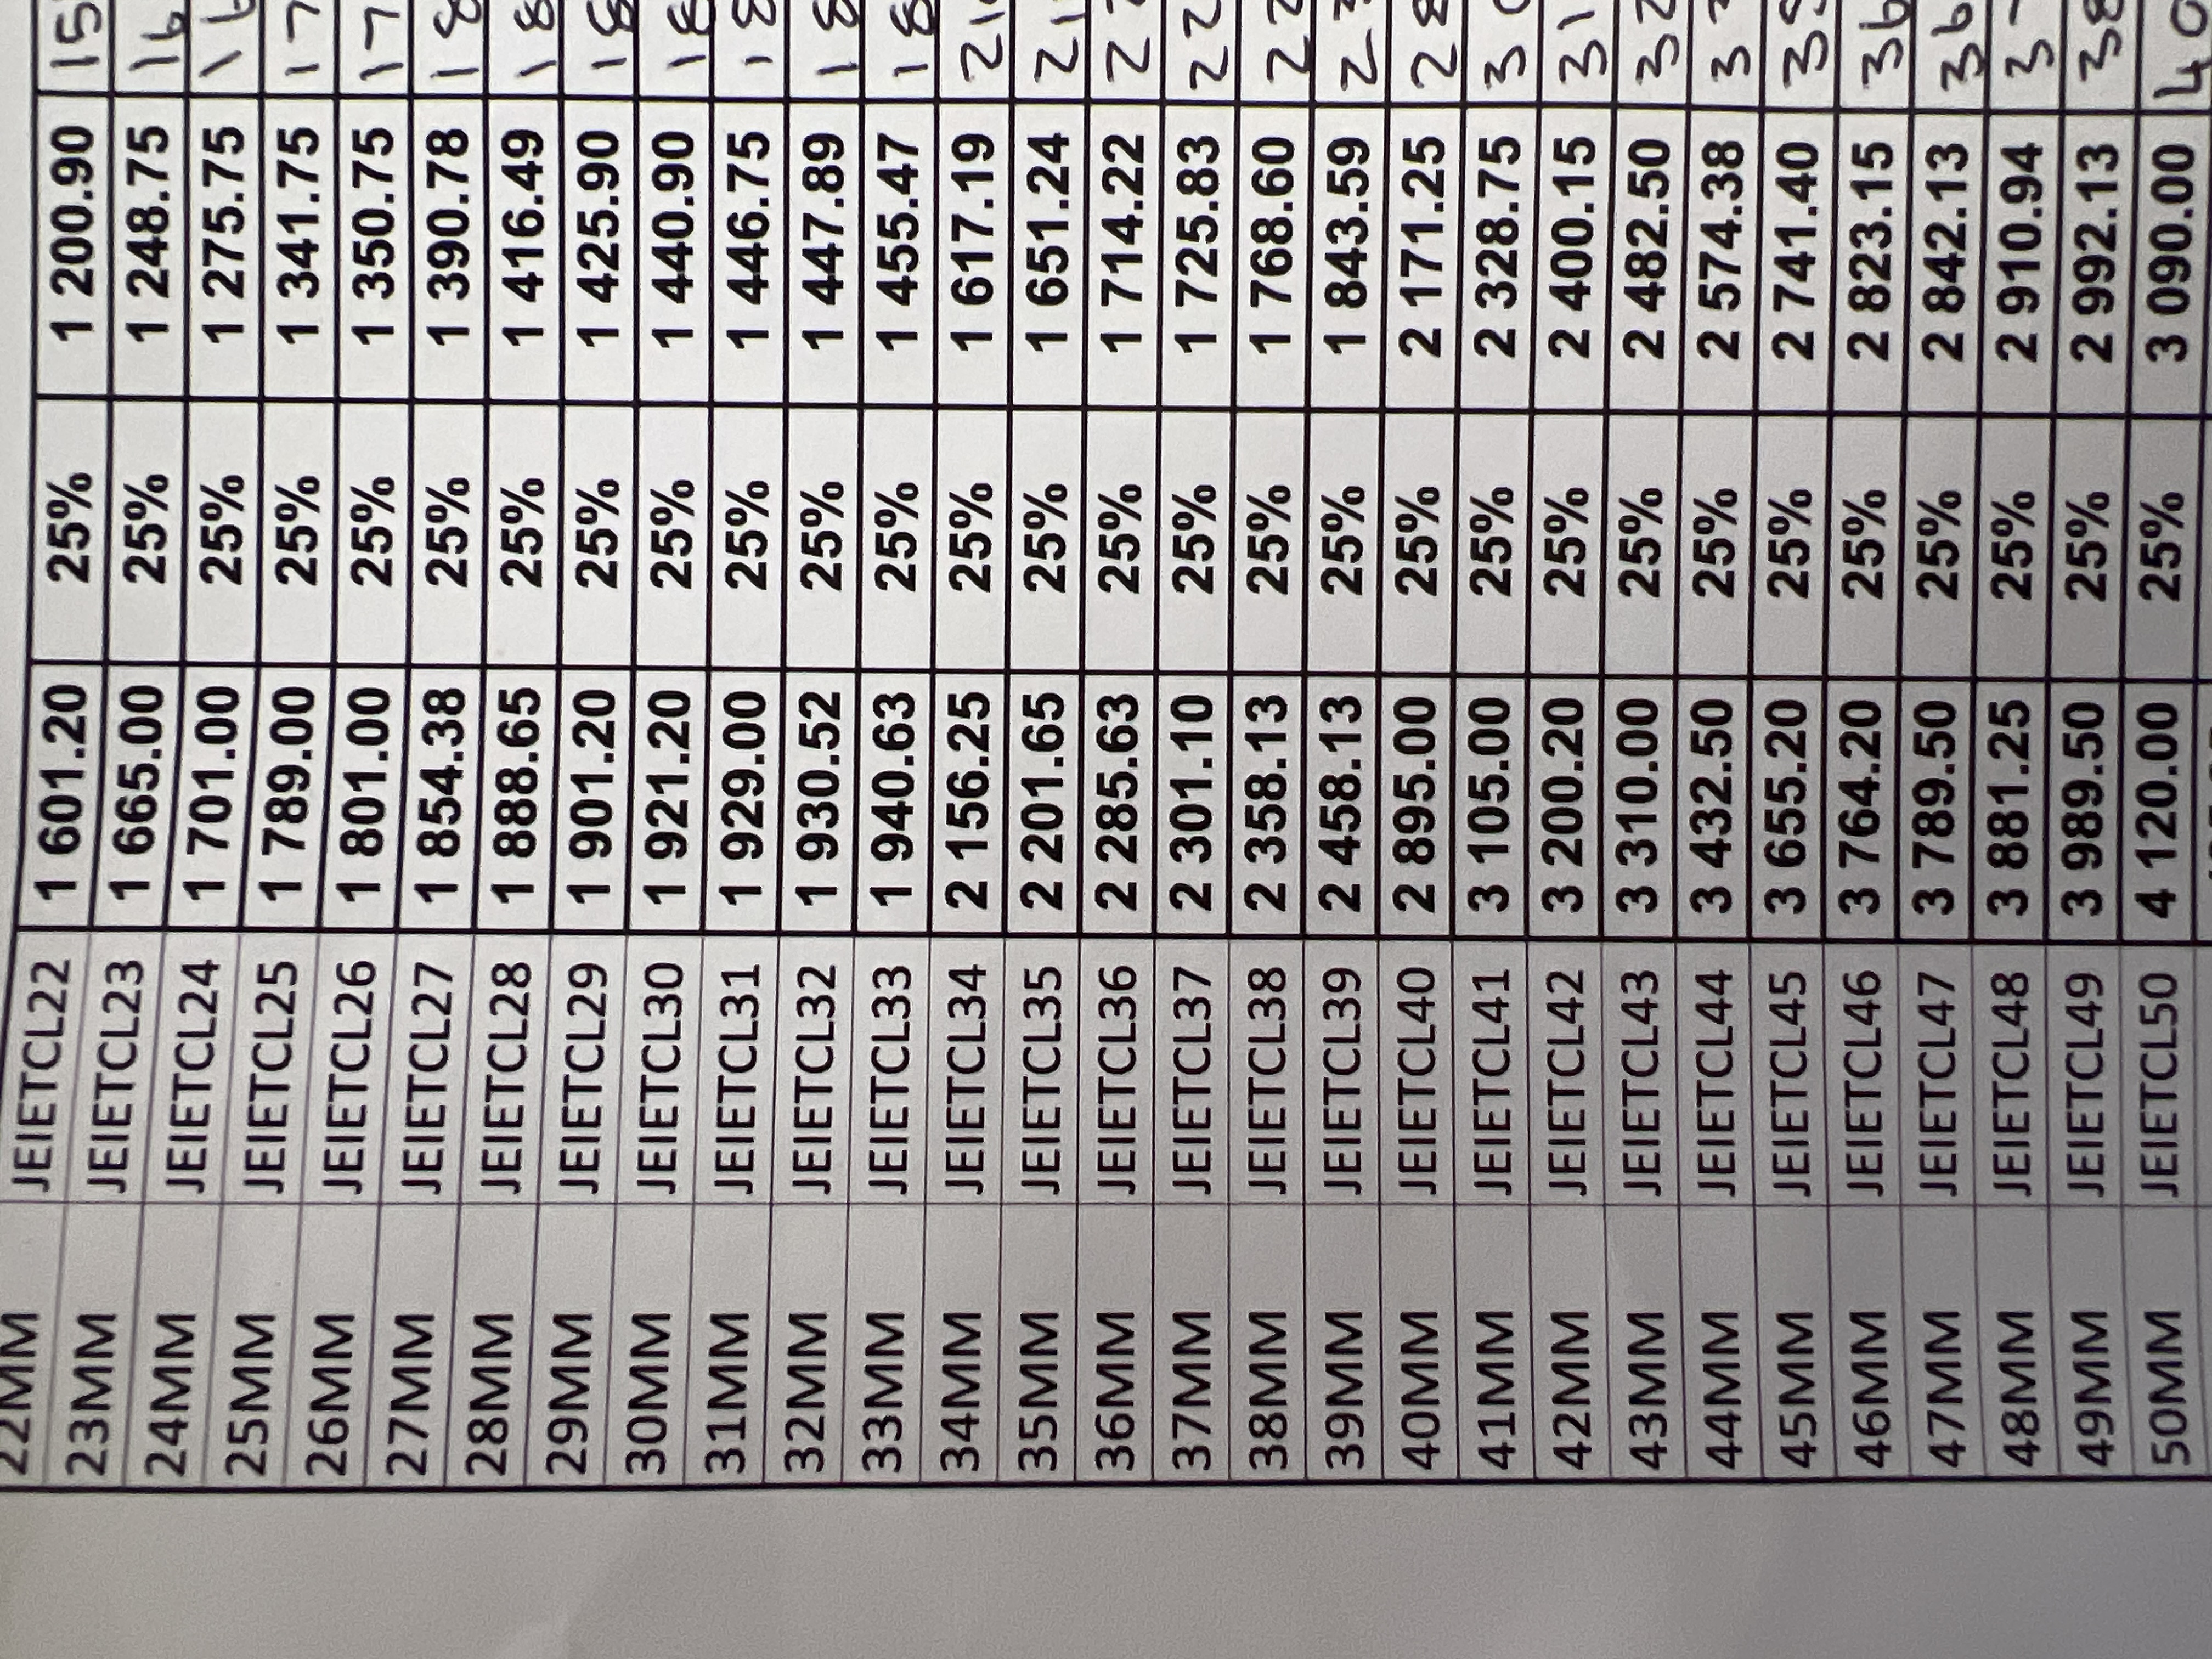 22MM JEIETCL22 1 601.20 25% 1 200.90 15
23MM JEIETCL23 1 665.00 25% 1 248.75 16
24MM JEIETCL24 1 701.00 25% 1 275.75 16
25MM JEIETCL25 1 789.00 25% 1 341.75 17
26MM JEIETCL26 1 801.00 25% 1 350.75 17
27MM JEIETCL27 1 854.38 25% 1 390.78 18
28MM JEIETCL28 1 888.65 25% 1 416.49 18
29MM JEIETCL29 1 901.20 25% 1 425.90 18
30MM JEIETCL30 1 921.20 25% 1 440.90 18
31MM JEIETCL31 1 929.00 25% 1 446.75 18
32MM JEIETCL32 1 930.52 25% 1 447.89 18
33MM JEIETCL33 1 940.63 25% 1 455.47 18
34MM JEIETCL34 2 156.25 25% 1 617.19 21
35MM JEIETCL35 2 201.65 25% 1 651.24 21
36MM JEIETCL36 2 285.63 25% 1 714.22 22
37MM JEIETCL37 2 301.10 25% 1 725.83 22
38MM JEIETCL38 2 358.13 25% 1 768.60 22
39MM JEIETCL39 2 458.13 25% 1 843.59 23
40MM JEIETCL40 2 895.00 25% 2 171.25 28
41MM JEIETCL41 3 105.00 25% 2 328.75 3
42MM JEIETCL42 3 200.20 25% 2 400.15 31
43MM JEIETCL43 3 310.00 25% 2 482.50 32
44MM JEIETCL44 3 432.50 25% 2 574.38 3
45MM JEIETCL45 3 655.20 25% 2 741.40 35
46MM JEIETCL46 3 764.20 25% 2 823.15 36
47MM JEIETCL47 3 789.50 25% 2 842.13 36
48MM JEIETCL48 3 881.25 25% 2 910.94 3
49MM JEIETCL49 3 989.50 25% 2 992.13 38
50MM JEIETCL50 4 120.00 25% 3 090.00 40